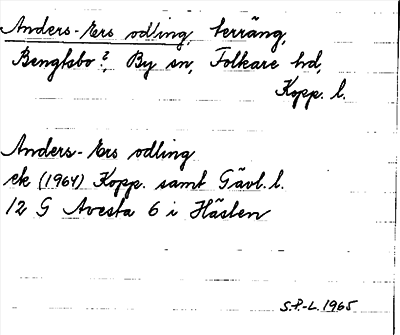 Anders-Ers odling, terräng,
Bengtsbo?, By sn, Folkare hd,
Kopp. l.
Anders-Ers odling
ek (1964) Kopp. samt Gävl. l.
12 G Avesta 6 i Hästen
S.P-L. 1965